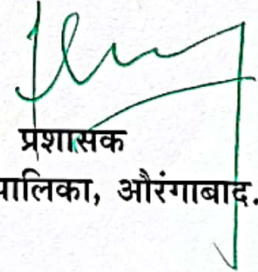 प्रशासक
पालिका, औरंगाबाद.